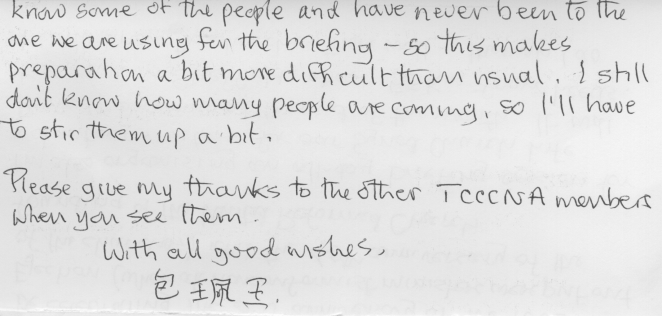 know some of the people and have never been to the
one we are using for the briefing – so this makes
preparation a bit more difficult than usual. I still
don't know how many people are coming, so I'll have
to stir them up a bit.
Please give my thanks to the other TCCCNA members
when you see them.
With all good wishes.
包珮玉.